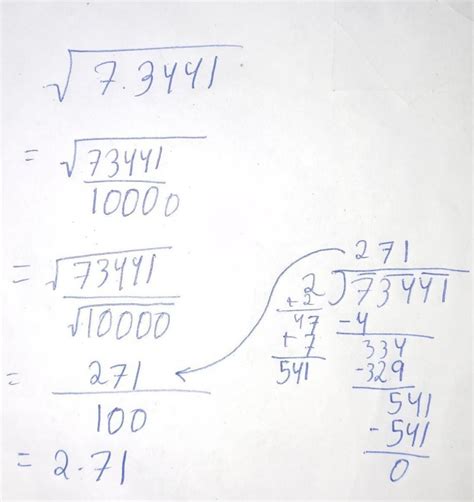 √7.3441
= √73441/10000
= √73441/√10000
= 271/100
= 2.71
271
2√73441
+2
47 -4
+7 334
541 -329
541
-541
0